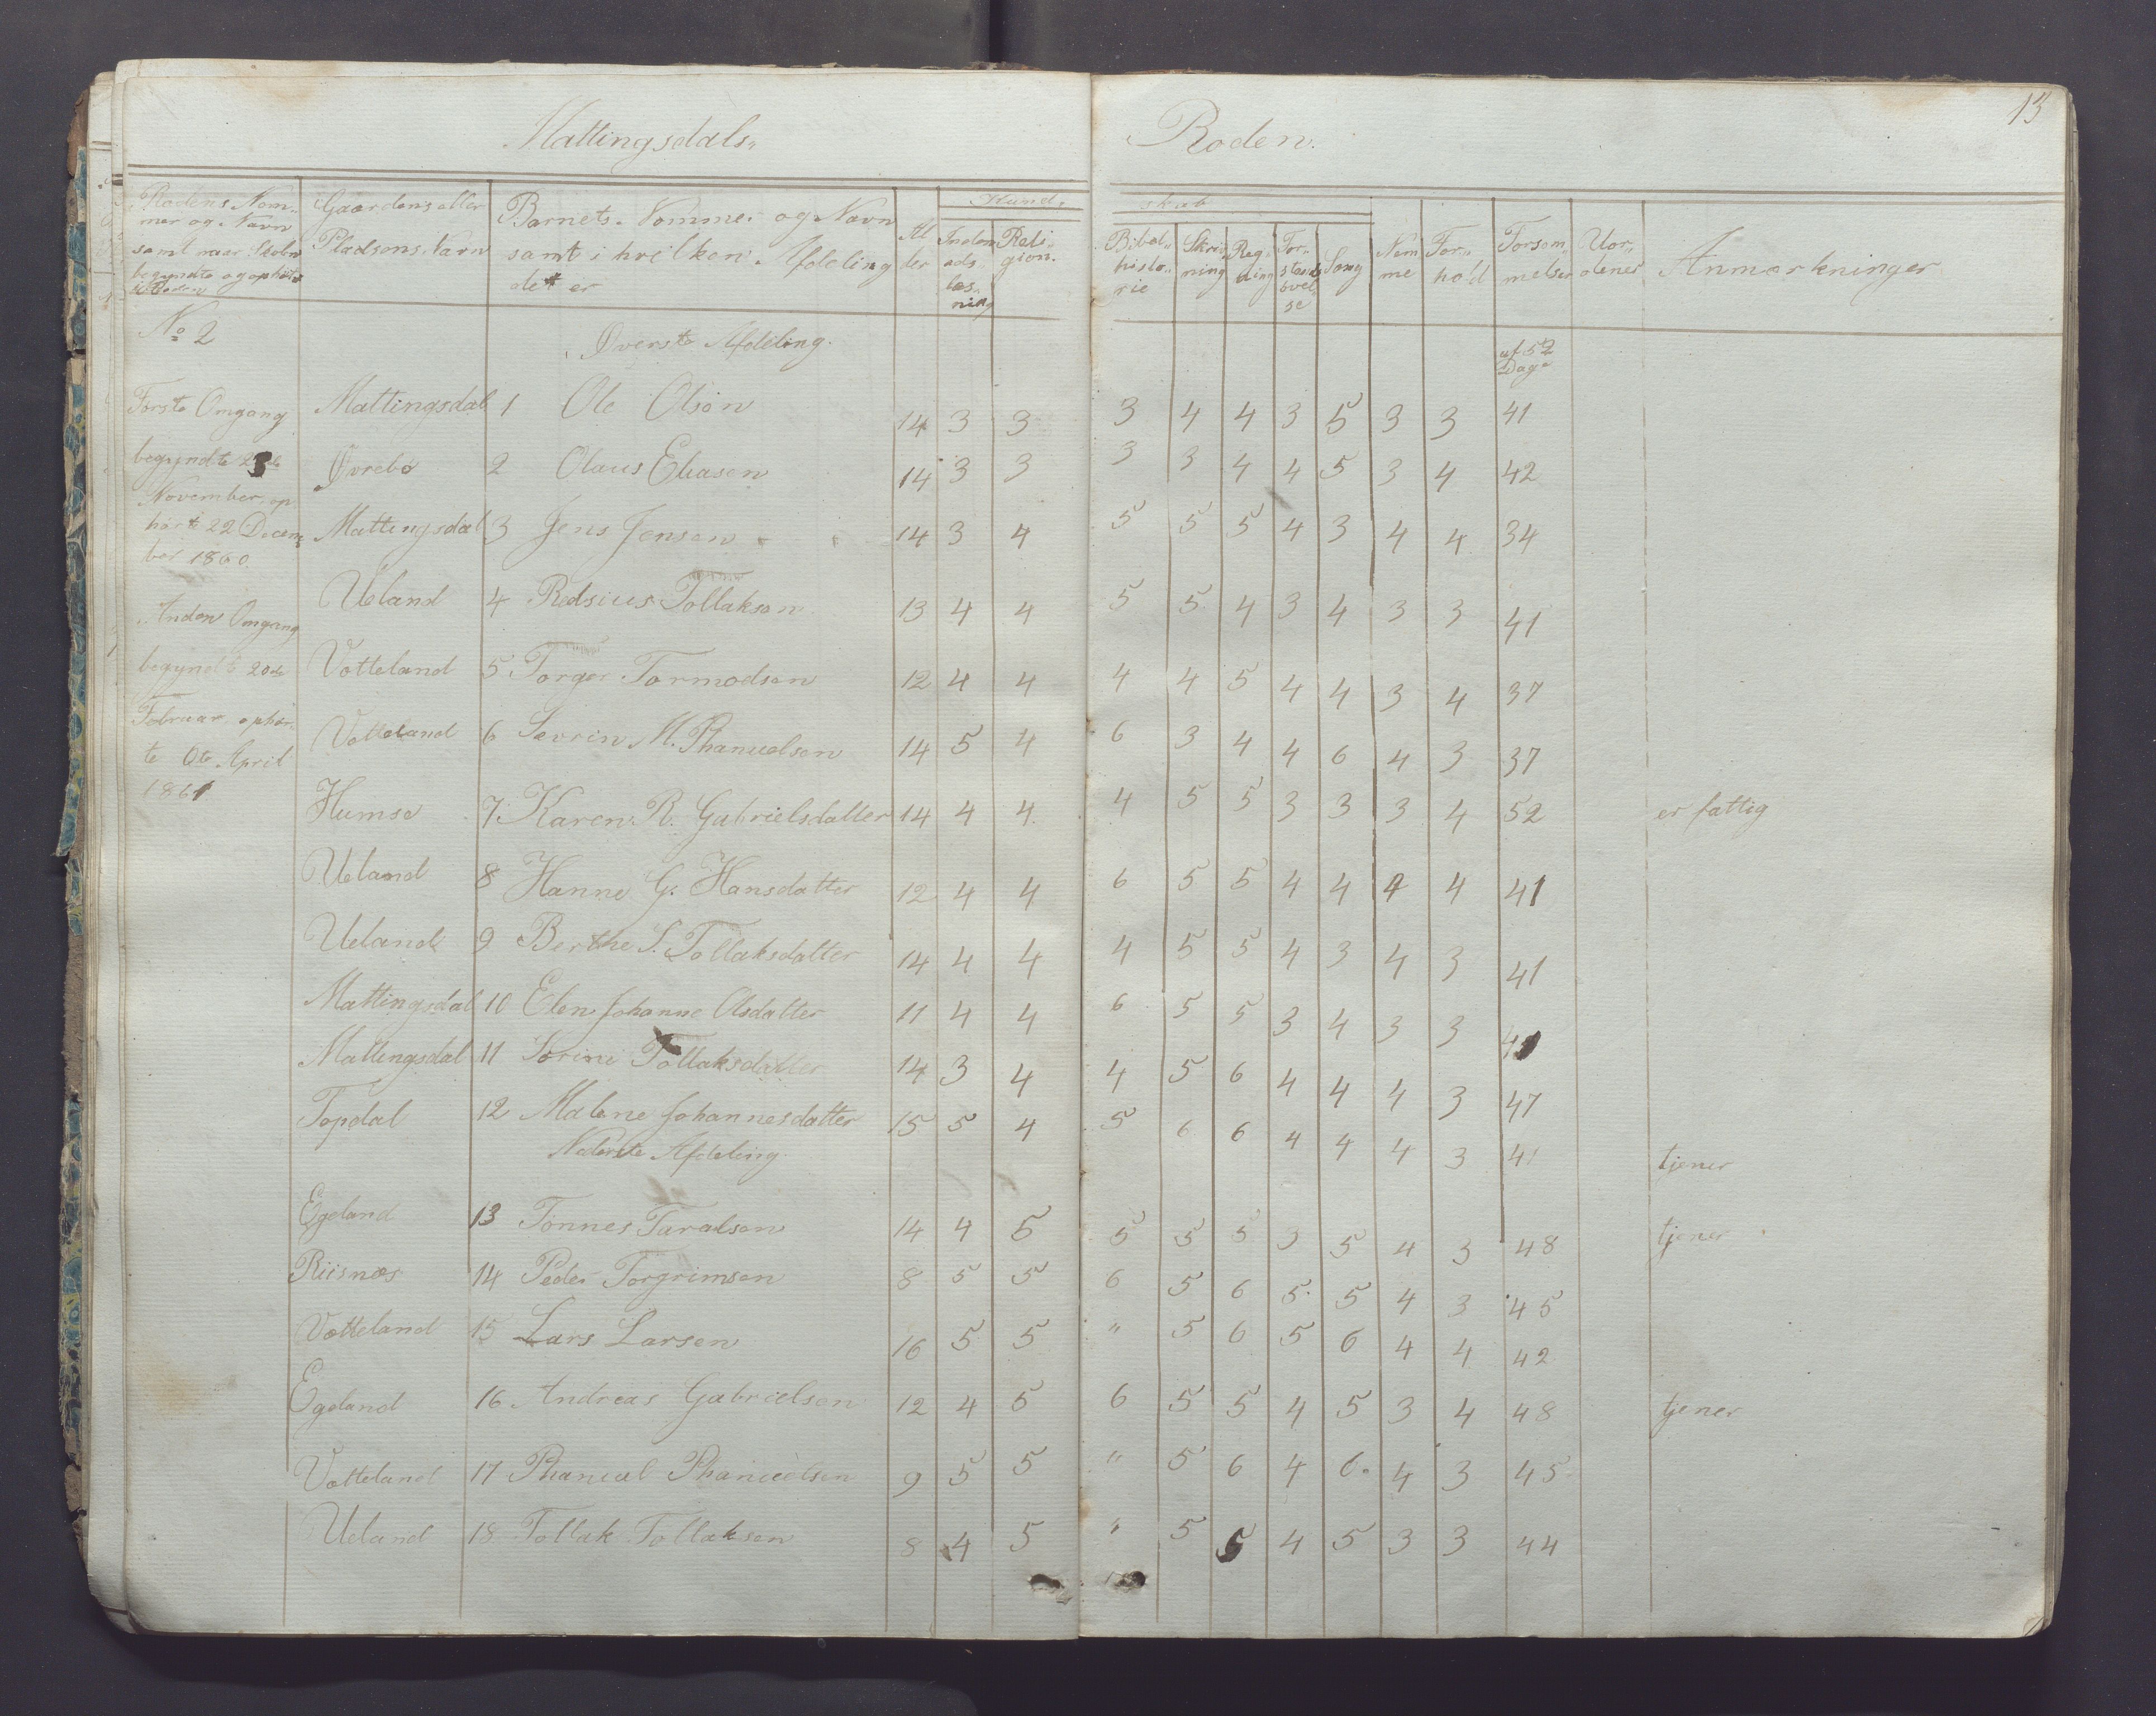 Mattingsdals„ Roden.
13
Rodens Nom„ mer og Navn samt naar Skolen begyndte og ophørte i Roden | Gaardens eller Pladsens Navn | Barnets Nommer og Navn samt i hvilken Afdeling det er | Al der | Kund„ skab | Inden ads læs ning | Reli„ gion. | Bibel„ histo„ rie | Skriv ning | Reg„ ning | For„ stands övel se | Sang | Nem me | For„ hold | Forsøm„ melser | Uor„ dener | Anmærkninger
No 2
Øverste Afdeling.
af 52 Dage
Første Omgang | Mattingsdal | 1 Ole Olsøn | 14 | 3 | 3 | 3 | 4 | 4 | 3 | 5 | 3 | 3 | 41
begyndte | Øvrebø | 2 Olaus Eliasen | 14 | 3 | 3 | 3 | 3 | 4 | 4 | 5 | 3 | 4 | 42
November, op
hørte 22 Decem | Mattingsdal | 3 Jens Jensen | 14 | 3 | 4 | 5 | 5 | 5 | 4 | 3 | 4 | 4 | 34
ber 1860.
Anden Omgang | Ueland | 4 Redsius Tollaksen | 13 | 4 | 4 | 5 | 5 | 4 | 3 | 4 | 3 | 3 | 41
begyndte 20de | Votteland | 5 Torger Tormodsen | 12 | 4 | 4 | 4 | 4 | 5 | 4 | 4 | 3 | 4 | 37
Februar, ophør„
te April | Votteland | 6 Sevrin M. Phanuelsen | 14 | 5 | 4 | 6 | 3 | 4 | 4 | 6 | 4 | 3 | 37
1861 | Humsø | 7 Karen R. Gabrielsdatter | 14 | 4 | 4 | 4 | 5 | 5 | 3 | 3 | 3 | 4 | 52 | er fattig
Ueland | 8 Hanne G. Hansdatter | 12 | 4 | 4 | 6 | 5 | 5 | 4 | 4 | 4 | 4 | 41
Ueland | 9 Berthe S. Tollaksdatter | 14 | 4 | 4 | 4 | 5 | 5 | 4 | 3 | 4 | 3 | 41
Mattingsdal | 10 Elen Johanne Olsdatter | 11 | 4 | 4 | 6 | 5 | 5 | 3 | 4 | 3 | 3 | 41
Mattingsdal | 11 Sørine Tollaksdatter | 14 | 3 | 4 | 4 | 5 | 6 | 4 | 4 | 4 | 3 | 47
Topdal | 12 Malene Johannesdatter | 15 | 5 | 4 | 5 | 6 | 6 | 4 | 4 | 4 | 3 | 41 | tjener
Nederste Afdeling
Egeland | 13 Tønnes Taralsen | 14 | 4 | 5 | 5 | 5 | 5 | 3 | 5 | 4 | 3 | 48 | tjener
Riisnæs | 14 Peder Torgrimsen | 8 | 5 | 5 | 6 | 5 | 6 | 5 | 5 | 4 | 3 | 45
Votteland | 15 Lars Larsen | 16 | 5 | 5 | „ | 5 | 6 | 5 | 6 | 4 | 4 | 42
Egeland | 16 Andreas Gabrielsen | 12 | 4 | 5 | 6 | 5 | 5 | 4 | 5 | 3 | 4 | 48 | tjener
Votteland | 17 Phanuel Phanuelsen | 9 | 5 | 5 | „ | 5 | 6 | 4 | 6 | 4 | 3 | 45
Ueland | 18 Tollak Tollaksen | 8 | 4 | 5 | „ | 5 | 5 | 4 | 5 | 3 | 3 | 44